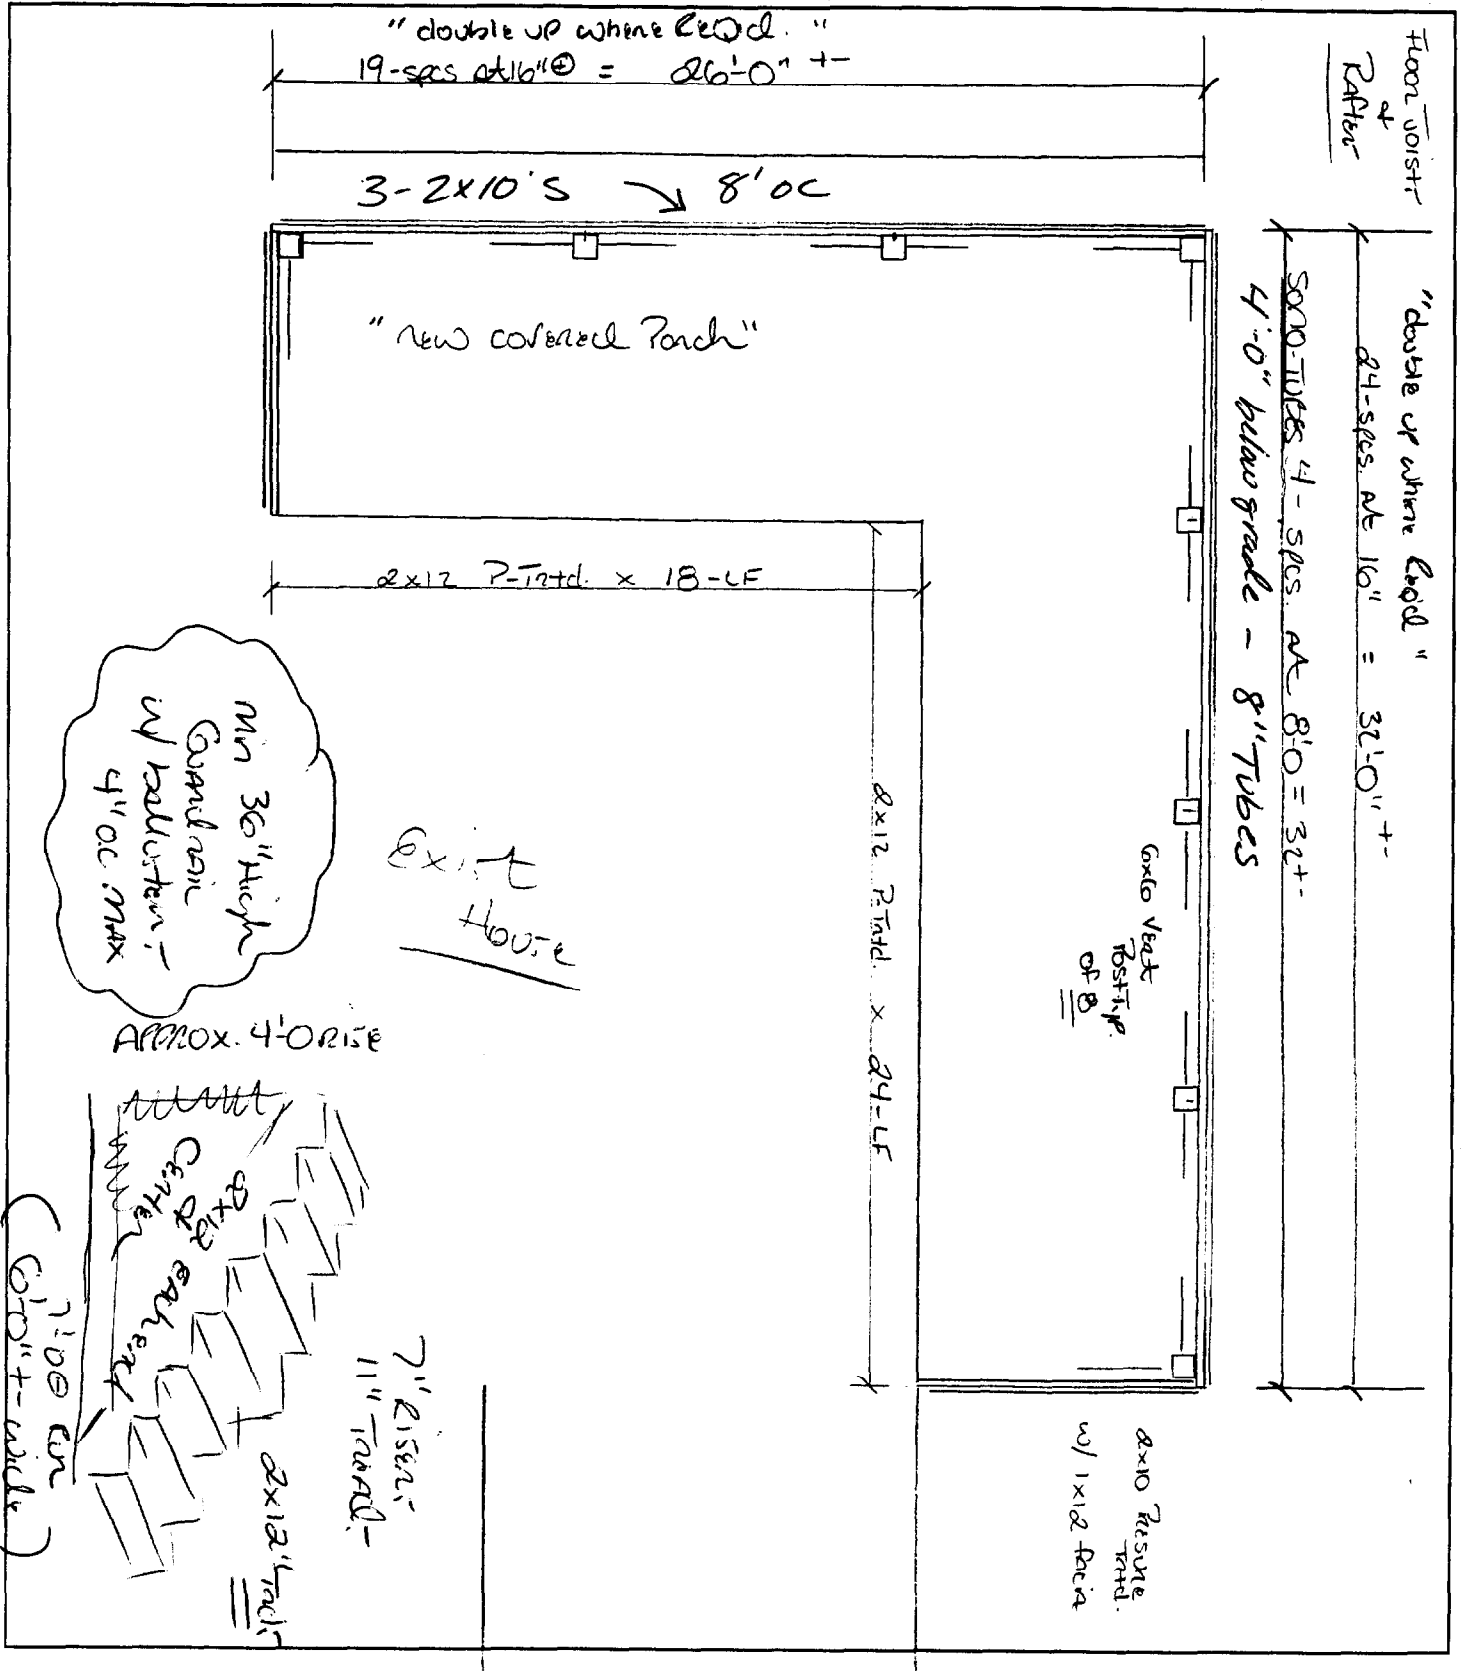 "double up where Req'd."
19-spcs at 16"⊕ = 26'-0" +-
3-2x10's → 8' OC
Floor Joists
&
Rafters
"double up where Req'd"
24-spcs. At 16" = 32'-0" +-
Sono-Tubes 4-spcs. At 8'0 = 32+-
4'-0" below grade - 8" Tubes
"new covered Porch"
2x12 P-Trtd. x 18-LF
2x12 P-Trtd. x 24-LF
6x6 Vert
Post Typ.
of 8
Exist
House
Min 36" High
Guardrail
w/ ballusters
4" o.c. MAX
APPROX. 4'-0 RISE
2x12 each end
&
Center
7'-0 Run
(6'-0" +- wide)
7" Risers
11" Treads
2x12" Treads
2x10 Pressure
Trtd.
w/ 1x12 facia